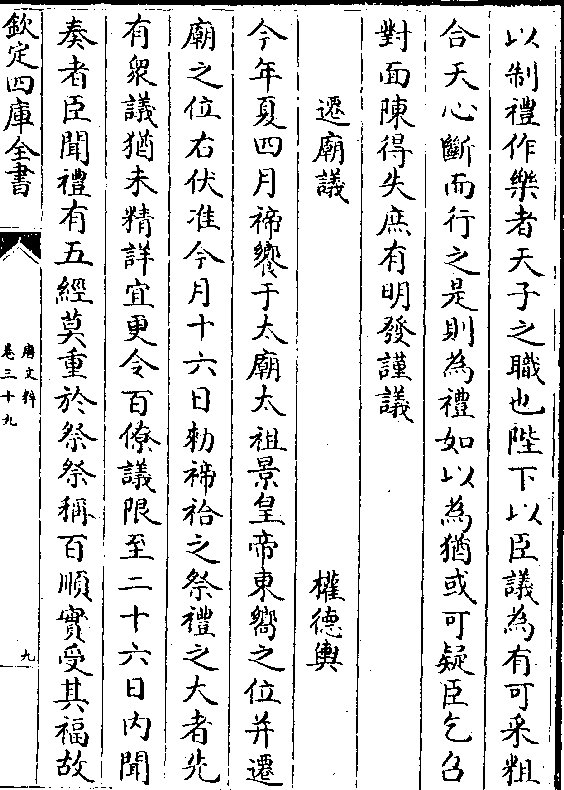 以制禮作樂者天子之職也陛下以臣議為有可采粗
合天心斷而行之是則為禮如以為猶或可疑臣乞召
對面陳得失庶有明發謹議
遷廟議　權德輿
今年夏四月禘饗于太廟太祖景皇帝東嚮之位并遷
廟之位右伏准今月十六日勅禘祫之祭禮之大者先
有衆議猶未精詳宜更令百僚議限至二十六日内聞
奏者臣聞禮有五經莫重於祭祭稱百順實受其福故
欽定四庫全書
唐文粹
卷三十九
九